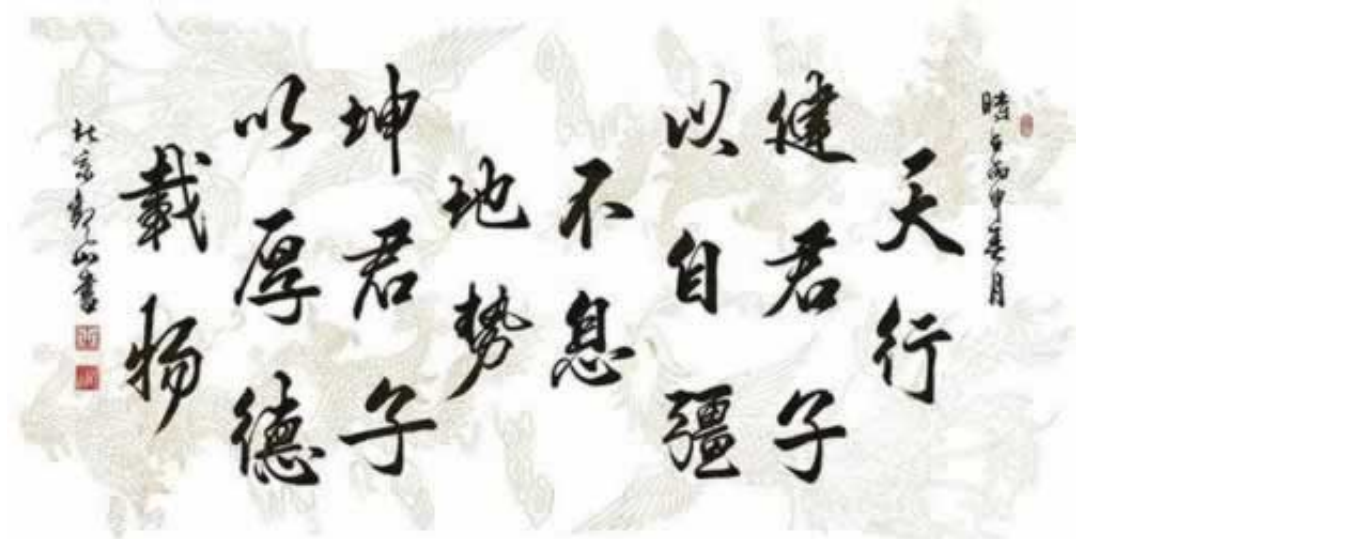 時在丙申春月
天行
健君子
以自彊
不息
地勢
坤君子
以厚德
載物
北京山書